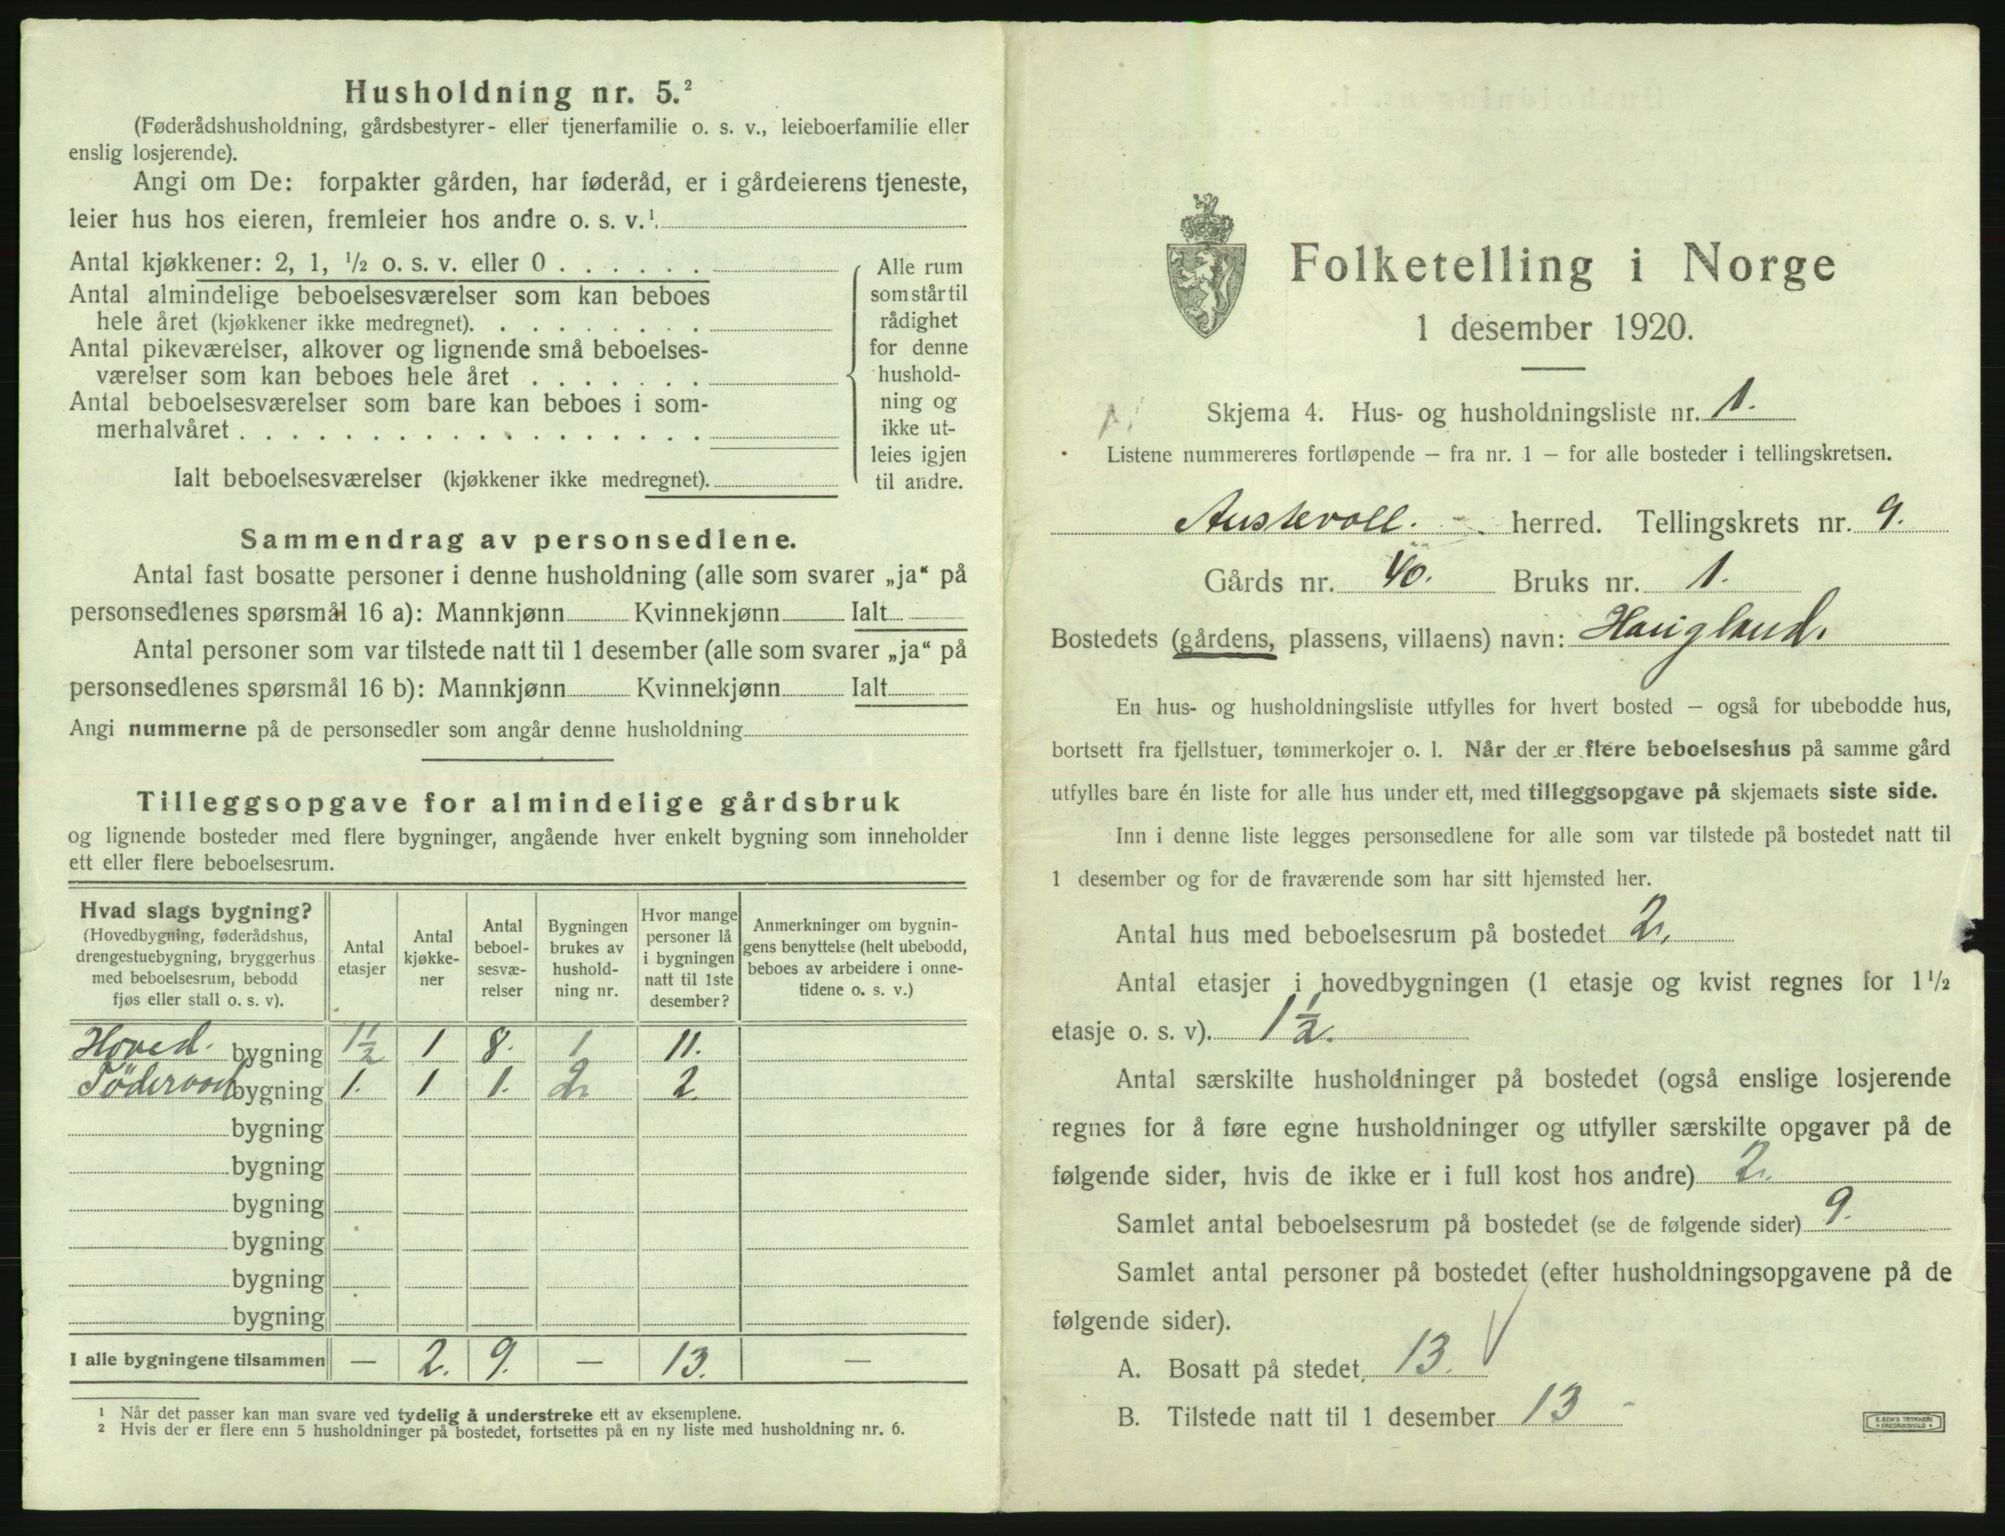 Husholdning nr. 5.²
(Føderådshusholdning, gårdsbestyrer- eller tjenerfamilie o. s. v., leieboerfamilie eller
enslig losjerende).
Angi om De: forpakter gården, har føderåd, er i gårdeierens tjeneste,
leier hus hos eieren, fremleier hos andre o. s. v.¹.
Antal kjøkkener: 2, 1, ½ o. s. v. eller 0 . . . . . .
Antal almindelige beboelsesværelser som kan beboes
hele året (kjøkkener ikke medregnet). . . . . . . . .
Antal pikeværelser, alkover og lignende små beboelses-
værelser som kan beboes hele året . . . . . . .
Antal beboelsesværelser som bare kan beboes i som-
merhalvåret . . . . . . . . . . . . . . . . . .
Ialt beboelsesværelser (kjøkkener ikke medregnet).
Alle rum
som står til
rådighet
for denne
hushold-
ning og
ikke ut-
leies igjen
til andre.
Sammendrag av personsedlene.
Antal fast bosatte personer i denne husholdning (alle som svarer „ja“ på
personsedlenes spørsmål 16 a): Mannkjønn Kvinnekjønn Ialt
Antal personer som var tilstede natt til 1 desember (alle som svarer „ja“ på
personsedlenes spørsmål 16 b): Mannkjønn Kvinnekjønn Ialt
Angi nummerne på de personsedler som angår denne husholdning
Tilleggsopgave for almindelige gårdsbruk
og lignende bosteder med flere bygninger, angående hver enkelt bygning som inneholder
ett eller flere beboelsesrum.
Hvad slags bygning?
(Hovedbygning, føderådshus,
drengestuebygning, bryggerhus
med beboelsesrum, bebodd
fjøs eller stall o. s. v).
Antal
etasjer
Antal
kjøkke-
ner
Antal
beboel-
sesvæ-
relser
Bygningen
brukes av
hushold-
ning nr.
Hvor mange
personer lå
i bygningen
natt til 1ste
desember?
Anmerkninger om bygnin-
gens benyttelse (helt ubebodd,
beboes av arbeidere i onne-
tidene o. s. v.)
Hoved. bygning 1½ 1 8. 1 11.
bygning 1. 1 1. 2. 2.
bygning
bygning
bygning
bygning
bygning
bygning
I alle bygningene tilsammen — 2. 9. — 13. —
¹ Når det passer kan man svare ved tydelig å understreke ett av eksemplene.
² Hvis der er flere enn 5 husholdninger på bostedet, fortsettes på en ny liste med husholdning nr. 6.
Folketelling i Norge
1 desember 1920.
Skjema 4. Hus- og husholdningsliste nr. 1.
Listene nummereres fortløpende — fra nr. 1 — for alle bosteder i tellingskretsen.
Austevoll. herred. Tellingskrets nr. 9.
Gårds nr. 40. Bruks nr. 1.
Bostedets (gårdens, plassens, villaens) navn: Haugland.
En hus- og husholdningsliste utfylles for hvert bosted — også for ubebodde hus,
bortsett fra fjellstuer, tømmerkojer o. l. Når der er flere beboelseshus på samme gård
utfylles bare én liste for alle hus under ett, med tilleggsopgave på skjemaets siste side.
Inn i denne liste legges personsedlene for alle som var tilstede på bostedet natt til
1 desember og for de fraværende som har sitt hjemsted her.
Antal hus med beboelsesrum på bostedet 2.
Antal etasjer i hovedbygningen (1 etasje og kvist regnes for 1½
etasje o. s. v). 1½.
Antal særskilte husholdninger på bostedet (også enslige losjerende
regnes for å føre egne husholdninger og utfyller særskilte opgaver på de
følgende sider, hvis de ikke er i full kost hos andre) 2.
Samlet antal beboelsesrum på bostedet (se de følgende sider) 9.
Samlet antal personer på bostedet (efter husholdningsopgavene på de
følgende sider).
A. Bosatt på stedet 13.
B. Tilstede natt til 1 desember 13
E. SEM'S TRYKKERI
FREDRIKSHALD